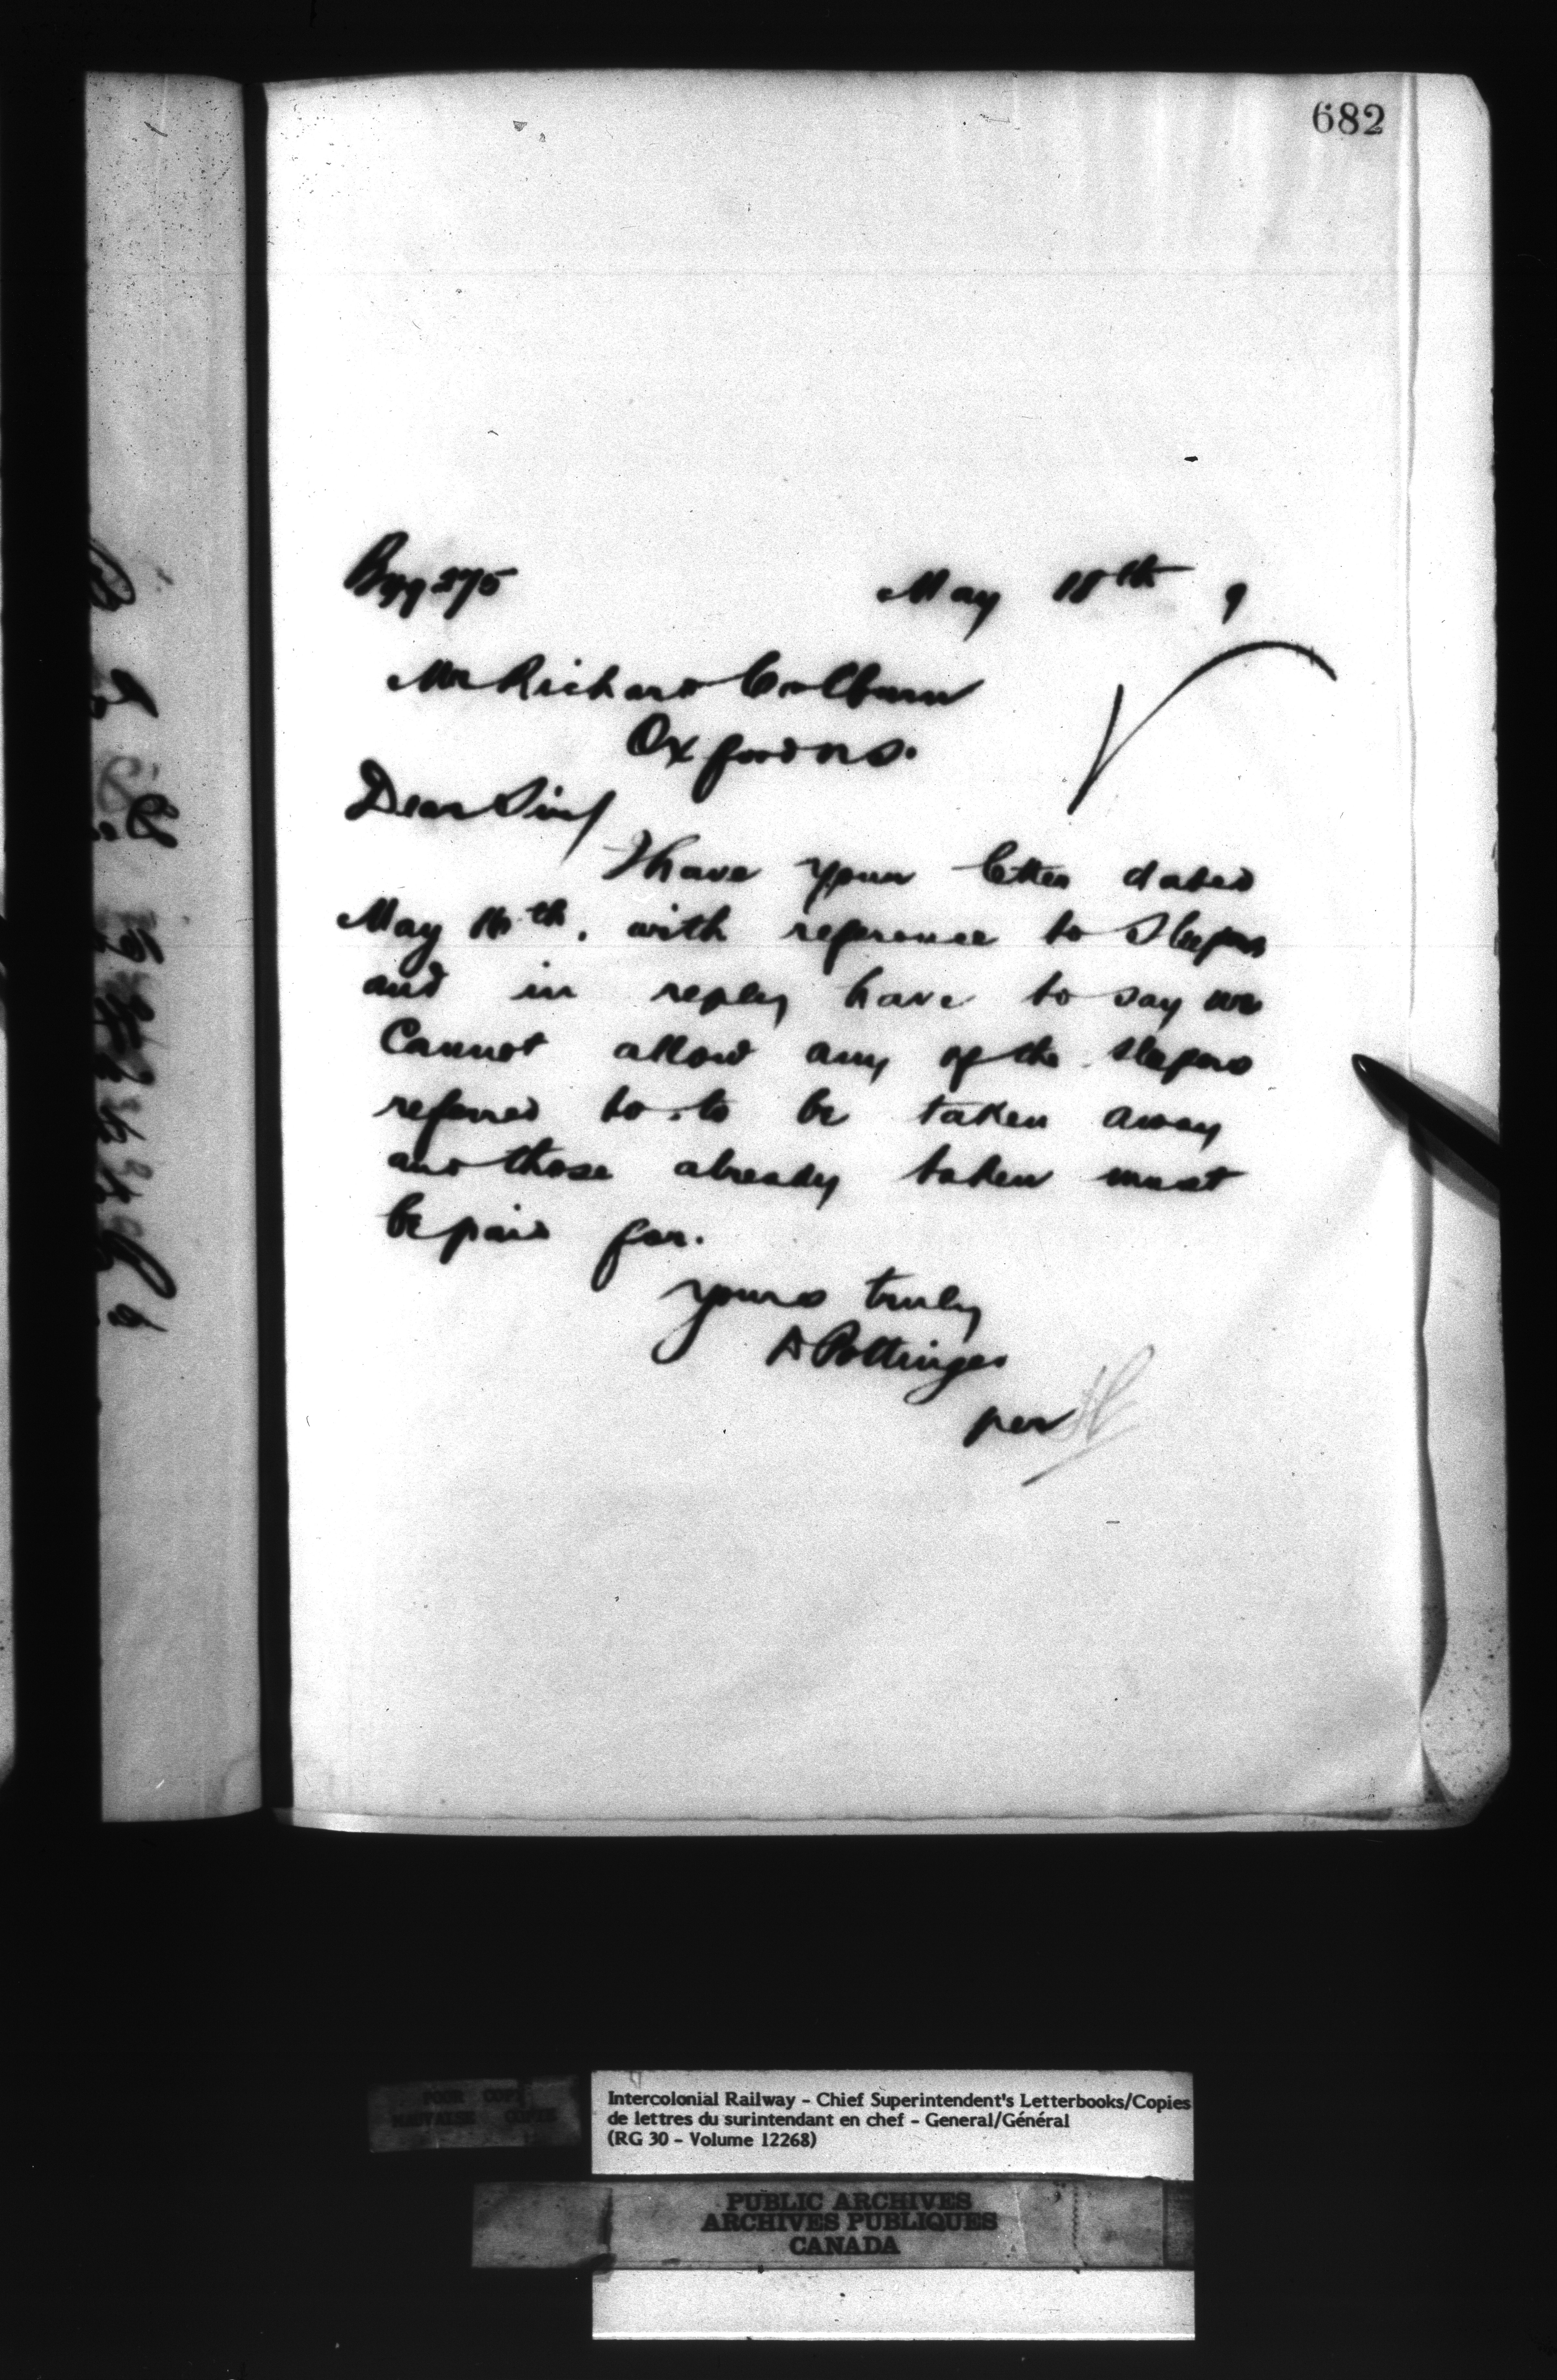 682
May 18th 9
Mr Richard Colburn
Oxford N.S.
Dear Sir/
I have your letter dated
May 16th, with reference to Sleepers
and in reply have to say we
Cannot allow any of the Sleepers
referred to to be taken away
and those already taken must
be paid for.
Yours truly
D Pottinger
per
POOR COPY
MAUVAISE COPIE
Intercolonial Railway - Chief Superintendent's Letterbooks/Copies
de lettres du surintendant en chef - General/Général
(RG 30 - Volume 12268)
PUBLIC ARCHIVES
ARCHIVES PUBLIQUES
CANADA